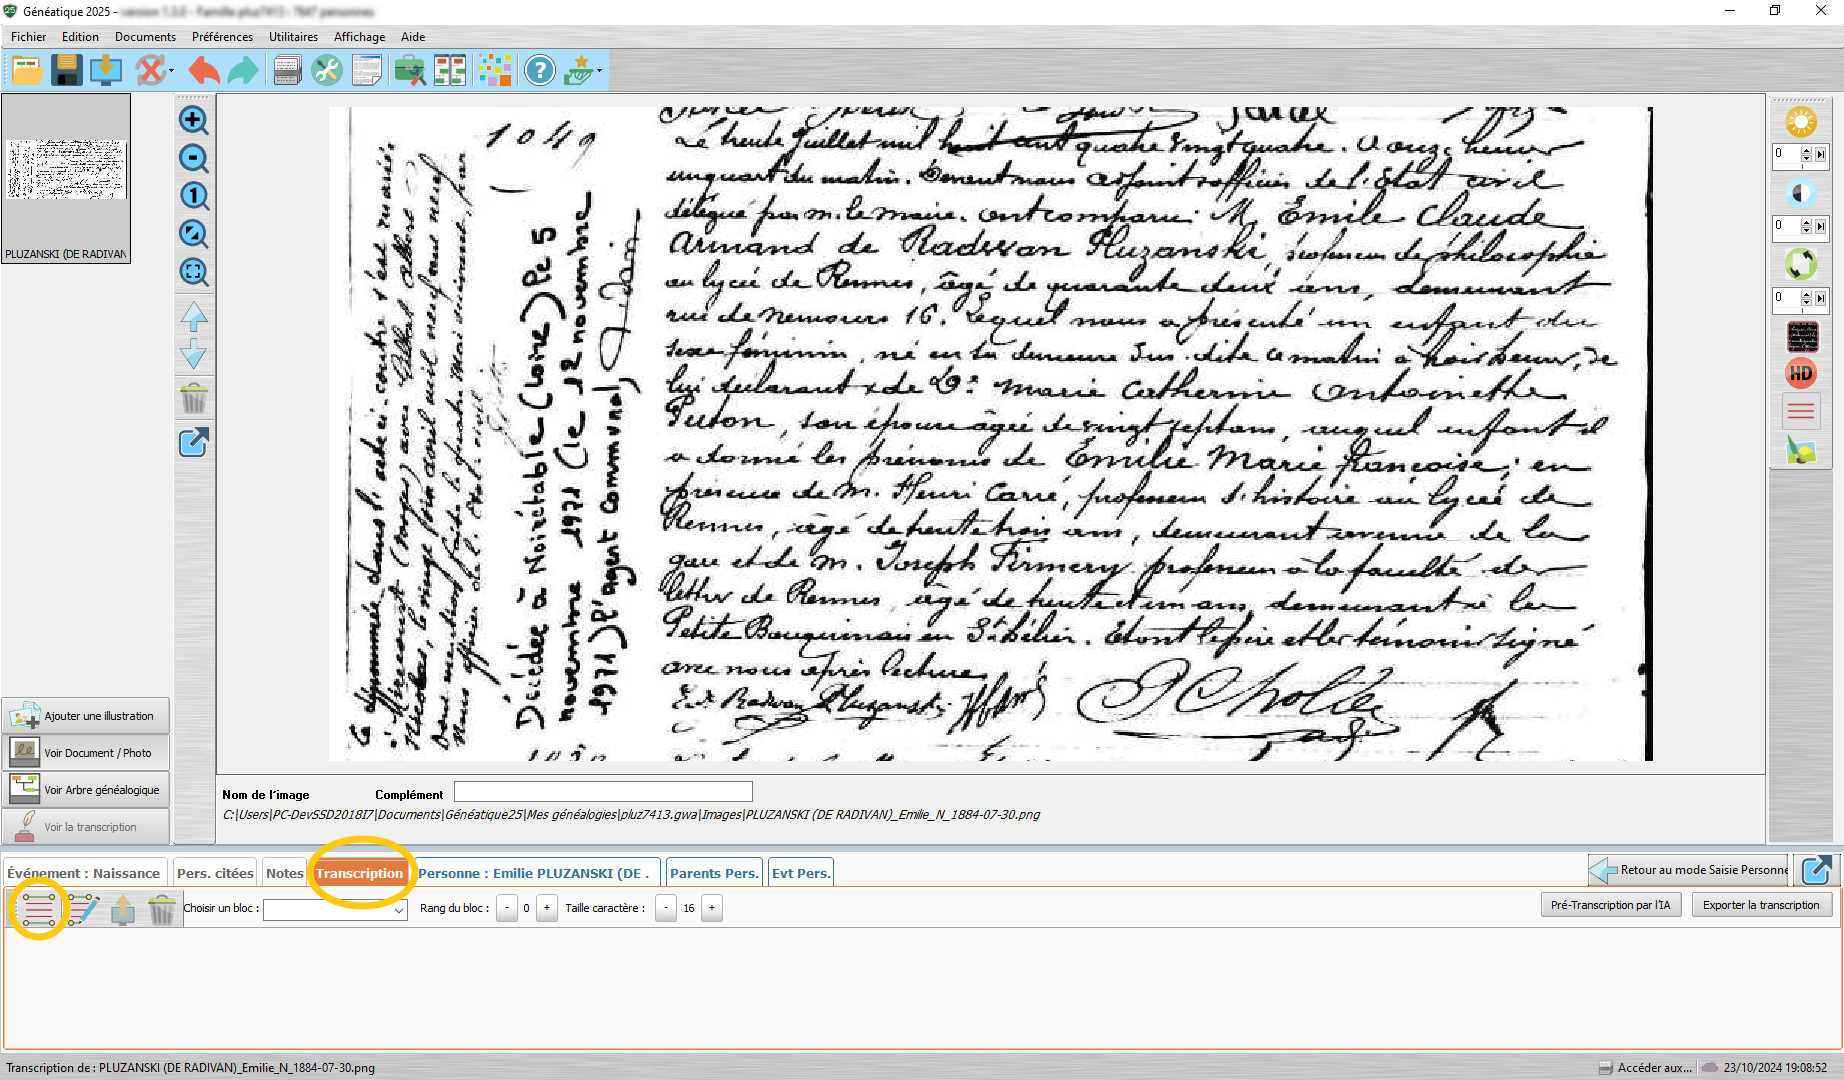 Généatique 2025 -
Fichier Edition Documents Préférences Utilitaires Affichage Aide
PLUZANSKI (DE RADIVAN
1049
Le trente Juillet mil huit cent quatre vingt quatre. à onze heures
un quart du matin. Devant nous adjoint officier de l'Etat civil
délégué par m. le maire. ont comparu: M. Emile Claude
Armand de Radwan Pluzanski, professeur de philosophie
au lycée de Rennes, âgé de quarante deux ans, demeurant
rue de nemours 16. Lequel nous a présenté un enfant du
sexe féminin, né en sa demeure sus-dite ce matin à trois heures, de
lui déclarant & de De. Marie Catherine Antoinette
son épouse âgée de vingt sept ans, auquel enfant il
a donné les prénoms de Emilie Marie françoise; en
présence de m. Henri Carré, professeur d'histoire au lycée de
Rennes, âgé de trente trois ans, demeurant avenue de la
gare et de m. Joseph Firmery professeur à la faculté des
lettres de Rennes, âgé de trente et un ans, demeurant à la
Petite en St hélier. Et ont le père et les témoins signé
avec nous après lecture
E. de Radwan Pluzanski
Décédée à Noirétable (Loire) Le 5
novembre 1971 (le 12 novembre
1971) l'agent communal,
La dénommée dans l'acte ci-contre s'est mariée
à Mirecourt (Vosges) avec Albert
Nicolas, le vingt cinq avril mil neuf cent neuf
l'officier de l'état-civil
Ajouter une illustration
Voir Document / Photo
Voir Arbre généalogique
Voir la transcription
Nom de l'image Complément
C:\Users\PC-DevSSD2018I7\Documents\Généatique25\Mes généalogies\pluz7413.gwa\Images\PLUZANSKI (DE RADIVAN)_Emilie_N_1884-07-30.png
0
0
0
HD
Événement : Naissance Pers. citées Notes Transcription Personne : Emilie PLUZANSKI (DE . Parents Pers. Evt Pers. Retour au mode Saisie Personne
Choisir un bloc : Rang du bloc : - 0 + Taille caractère : - 16 + Pré-Transcription par l'IA Exporter la transcription
Transcription de : PLUZANSKI (DE RADIVAN)_Emilie_N_1884-07-30.png Accéder aux... 23/10/2024 19:08:52